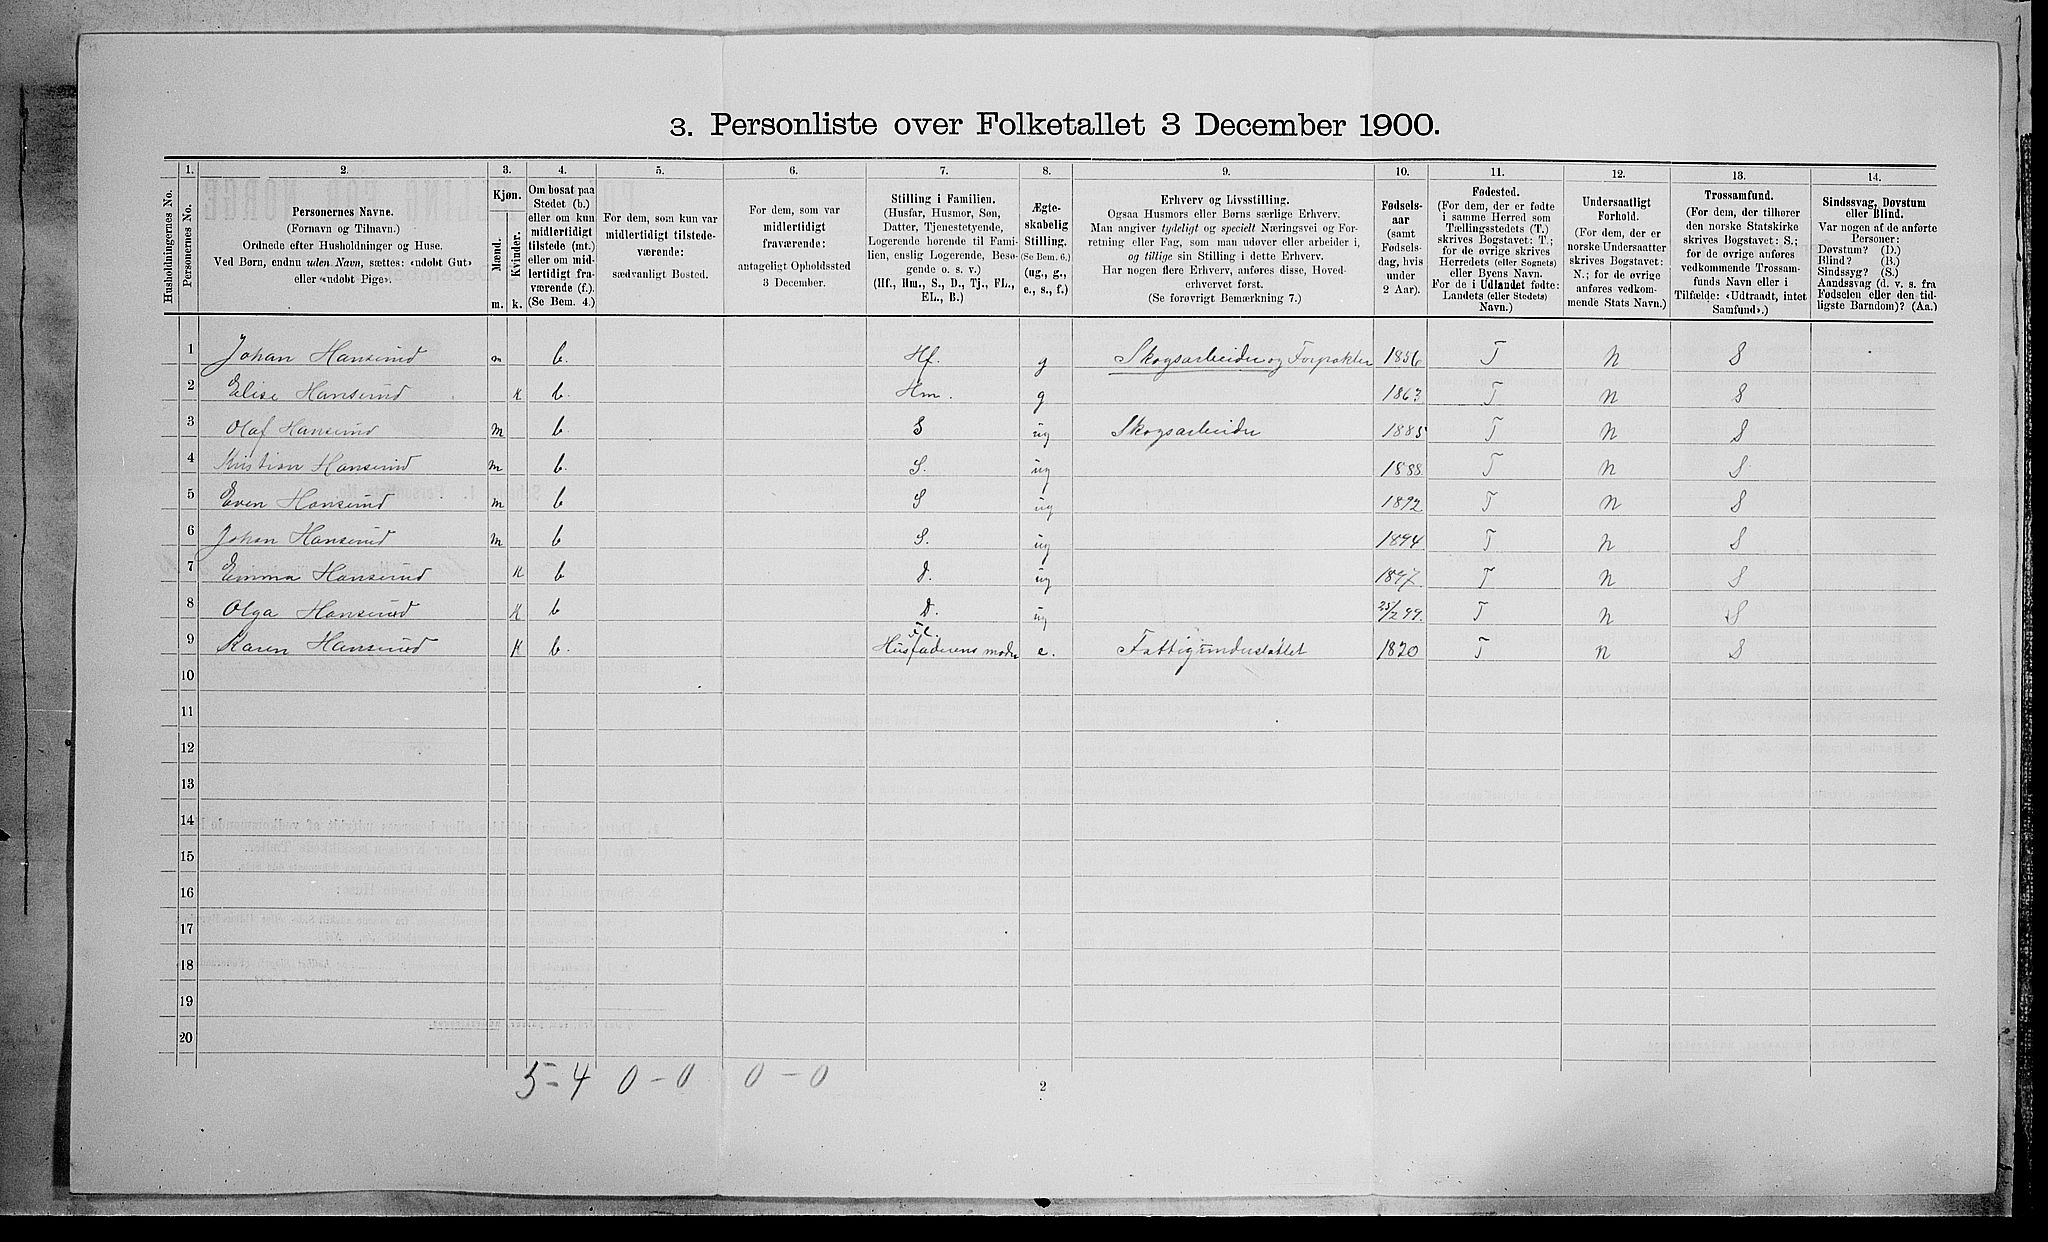 3. Personliste over Folketallet 3 December 1900.
1. 2. 3. 4. 5. 6. 7. 8. 9. 10. 11. 12. 13. 14.
Husholdningernes No.
Personernes No.
Personernes Navne.
(Fornavn og Tilnavn.)
Ordnede efter Husholdninger og Huse.
Ved Børn, endnu uden Navn, sættes: «udøbt Gut»
eller «udøbt Pige».
Kjøn.
Mænd.
Kvinder.
m. k.
Om bosat paa
Stedet (b.)
eller om kun
midlertidigt
tilstede (mt.)
eller om mid-
lertidigt fra-
værende (f.).
(Se Bem. 4.)
For dem, som kun var
midlertidigt tilstede-
værende:
sædvanligt Bosted.
For dem, som var
midlertidigt
fraværende:
antageligt Opholdssted
3 December.
Stilling i Familien.
(Husfar, Husmor, Søn,
Datter, Tjenestetyende,
Logerende hørende til Fami-
lien, enslig Logerende, Besø-
gende o. s. v.)
(Hf., Hm., S., D., Tj., FL.,
EL., B.)
Ægte-
skabelig
Stilling.
(Se Bem. 6.)
(ug., g.,
e., s., f.)
Erhverv og Livsstilling.
Ogsaa Husmors eller Børns særlige Erhverv.
Man angiver tydeligt og specielt Næringsvei og For-
retning eller Fag, som man udøver eller arbeider i,
og tillige sin Stilling i dette Erhverv.
Har nogen flere Erhverv, anføres disse, Hoved-
erhvervet først.
(Se forøvrigt Bemærkning 7.)
Fødsels-
aar
(samt
Fødsels-
dag, hvis
under
2 Aar).
Fødested.
(For dem, der er fødte
i samme Herred som
Tællingsstedets (T.)
skrives Bogstavet: T.;
for de øvrige skrives
Herredets (eller Sognets)
eller Byens Navn.
For de i Udlandet fødte:
Landets (eller Stedets)
Navn.)
Undersaatligt
Forhold.
(For dem, der er
norske Undersaatter
skrives Bogstavet:
N.; for de øvrige
anføres vedkom-
mende Stats Navn.)
Trossamfund.
(For dem, der tilhører
den norske Statskirke
skrives Bogstavet: S.;
for de øvrige anføres
vedkommende Trossam-
funds Navn eller i
Tilfælde: «Udtraadt, intet
Samfund».)
Sindssvag, Døvstum
eller Blind.
Var nogen af de anførte
Personer:
Døvstum? (D.)
Blind? (B.)
Sindssyg? (S.)
Aandssvag (d. v. s. fra
Fødselen eller den tid-
ligste Barndom)? (Aa.)
1 Johan Hanserud m b. Hf. g Skogsarbeider og Forpakter 1856 T N S
2 Elise Hanserud K b. Hm. g 1863 T N S
3 Olaf Hanserud m b. S ug Skogsarbeider 1885 T N S
4 Kristian Hanserud m b. S. ug 1888. T N S
5 Even Hanserud m b S ug 1892 T N S
6 Johan Hanserud m b S. ug 1894 T N S
7 Emma Hanserud K b D. ug 1897. T N S
8 Olga Hanserud K b D. ug 25/2 99. T N S
9 Karen Hanserud K b. Husfaderens moder e. Fattigunderstøttet 1820 T N S
10
11
12
13
14
15
16
17
18
19
20
5-4 0-0 0-0
2